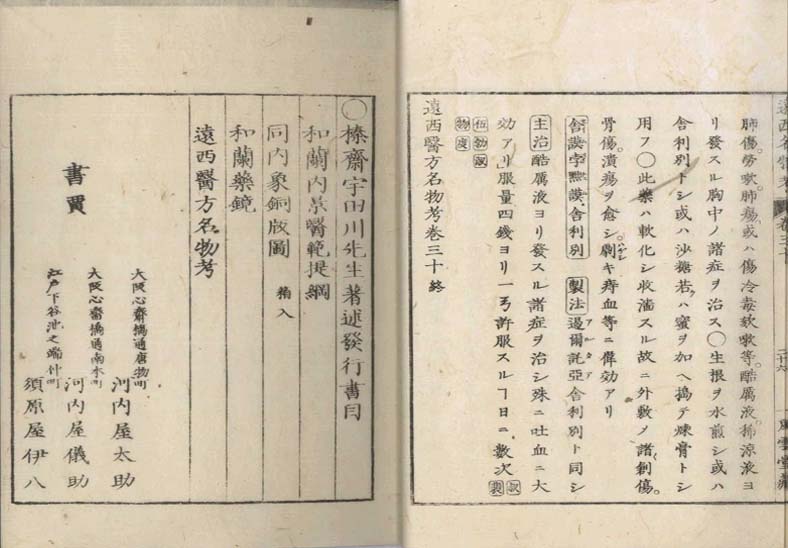 肺傷。勞嗽。肺瘍。或ハ傷冷毒欬嗽等。酷厲液。稀涼液ヨ
リ發スル胸中ノ諸症ヲ治ス〇生根ヲ水煎シ或ハ
舎利別トシ或ハ沙糖若クハ蜜ヲ加ヘ搗テ煉膏トシ
用フ〇此藥ハ軟化シ收濇スル故ニ外敷ノ諸創傷。
骨傷。潰瘍ヲ愈シ。劇キ痔血等ニ偉効アリ
舎利別 製法 舎利別ト同シ
主治 酷厲液ヨリ發スル諸症ヲ治シ殊ニ吐血ニ大
効アリ服量四錢ヨリ一弓許服スルヿ日ニ數次
遠西醫方名物考卷三十終
〇榛齋宇田川先生著述發行書目
和蘭内景醫範提綱
同内象銅版圖 箱入
和蘭藥鏡
遠西醫方名物考
書賈
大阪心齋橋通唐物町 河内屋太助
大阪心齋橋通南本町 河内屋儀助
江戸下谷池之端仲町 須原屋伊八